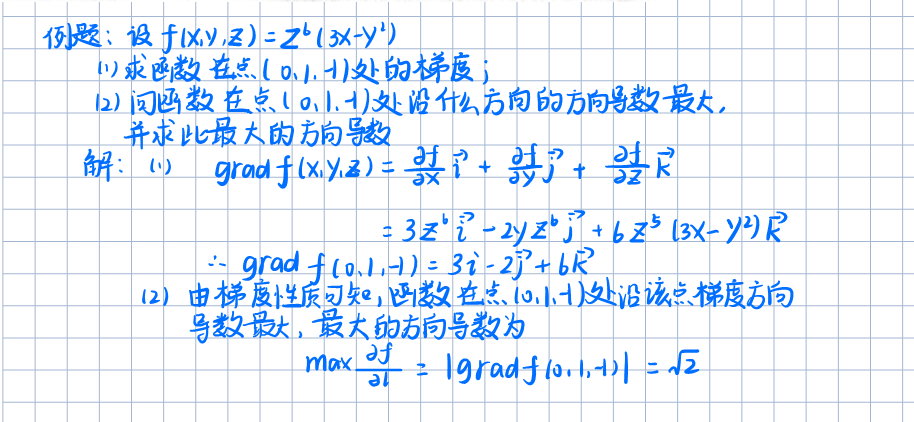 例题：设 f(x,y,z)=z⁶(3x-y²)
(1) 求函数在点(0,1,-1)处的梯度；
(2) 问函数在点(0,1,-1)处沿什么方向的方向导数最大，
并求此最大的方向导数
解：(1) grad f(x,y,z) = ∂f/∂x i⃗ + ∂f/∂y j⃗ + ∂f/∂z k⃗
= 3z⁶ i⃗ - 2yz⁶ j⃗ + 6z⁵(3x-y²) k⃗
∴ grad f(0,1,-1) = 3i - 2j⃗ + 6k⃗
(2) 由梯度性质可知，函数在点(0,1,-1)处沿该点梯度方向
导数最大，最大的方向导数为
max ∂f/∂l = |grad f(0,1,-1)| = √2